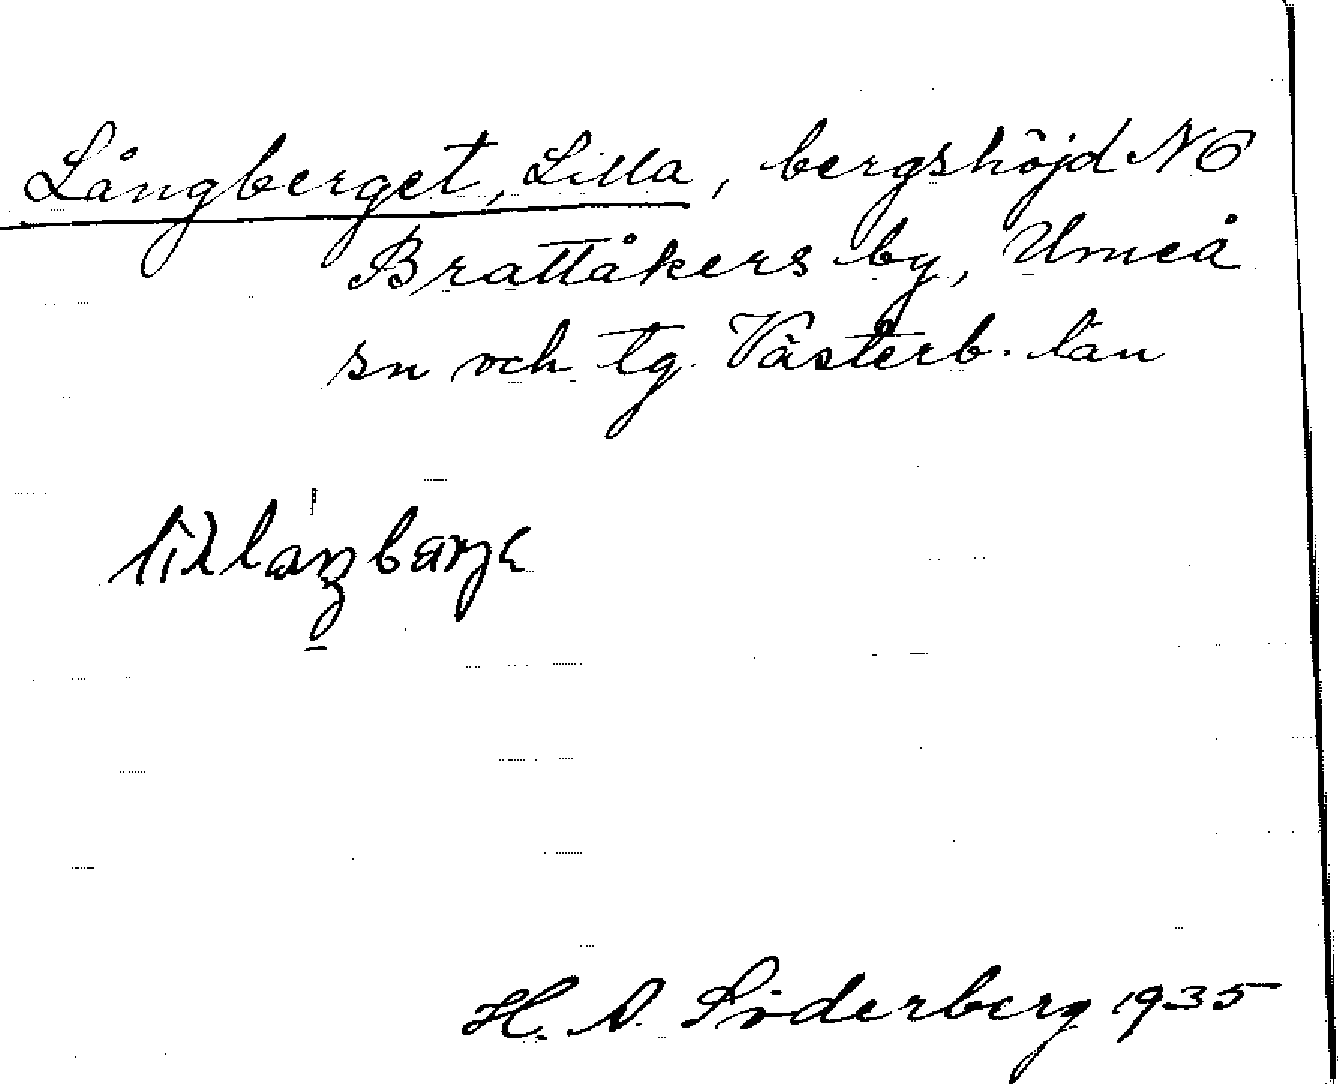 Långberget, Lilla, bergshöjd NO
Brattåkers by, Umeå
sn och tg. Västerb. län
H. A. Söderberg 1935